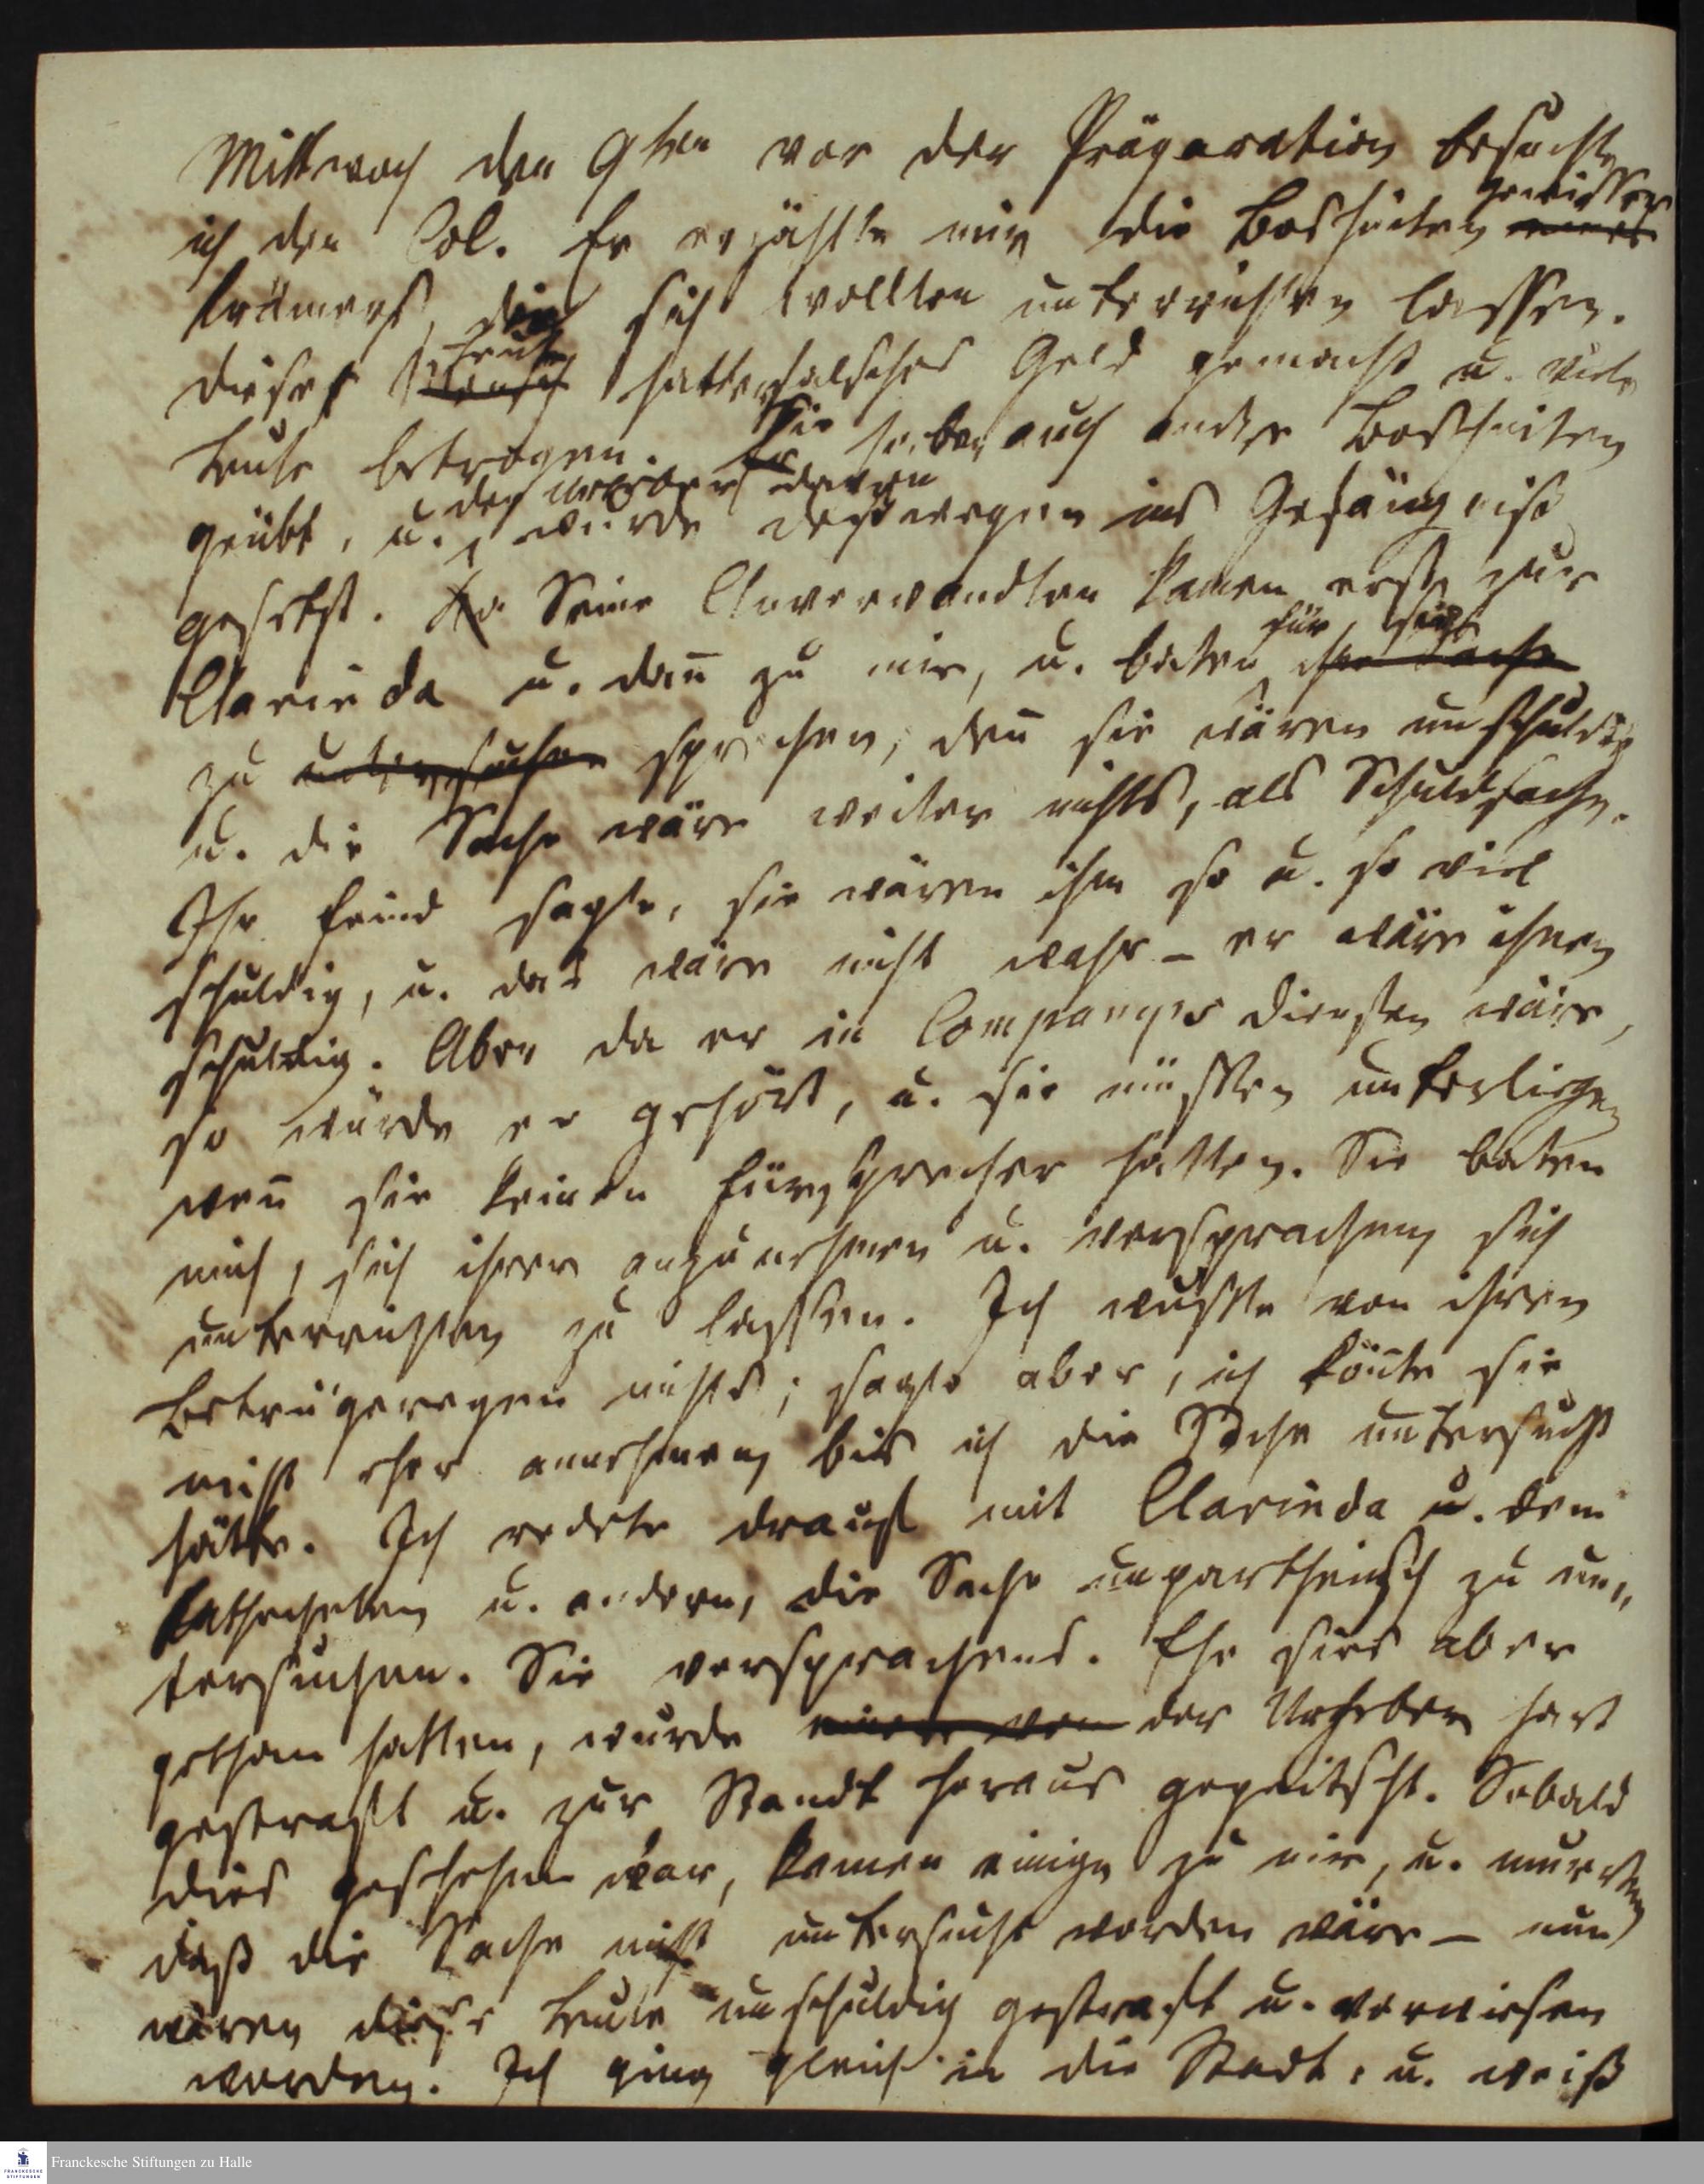 Mittwoch den 9ten vor der Präparation besuchte
ich den Col. Er erzählte mir die Bosheiten eines gewisser
Krämers, die sich wollten unterrichten laßen.
Diese Mensch Leute hatten falsches Geld gemacht u. viele
Leute betrogen. Er Sie haben auch andre Bosheiten
geübt, u. der Urheber davon wurde deßwegen ins Gefängniß
gesetzt. Da Seine Anverwandten kamen erst zur
Clarinda u. dañ zu mir, u. baten ihre Sache für sie
zu untersuchen sprechen, deñ sie wären unschuldig
u. die Sache wäre weiter nichts, als Schuldsache.
Ihr Feind sagte, sie wären ihm so u. so viel
schuldig, u. das wäre nicht wahr – er wäre ihnen
schuldig. Aber da er in Companys Diensten wäre,
so würde er gehört, u. sie müßten unterliegen
weñ sie keinen Fürsprecher hätten. Sie baten
mich, sich ihrer anzunehmen u. versprachen sich
unterrichten zu laßen. Ich wußte von ihren
Betrügereyen nichts; sagte aber, ich köñte sie
nicht eher annehmen bis ich die Sache untersucht
hätte. Ich redete drauf mit Clarinda u. dem
Katecheten u. andern, die Sache unpartheiisch zu un„
tersuchen. Sie versprachens. Ehe sies aber
gethan hatten, wurde einer von der Urheber hart
gestraft u. zur Standt heraus gepeitscht. Sobald
dies geschehen war, kamen einige zu mir, u. murrten
daß die Sache nicht untersucht worden wäre – nun
wären diese Leute unschuldig gestraft u. verwiesen
worden. Ich ging gleich in die Stadt, u. weiß
Franckesche Stiftungen zu Halle